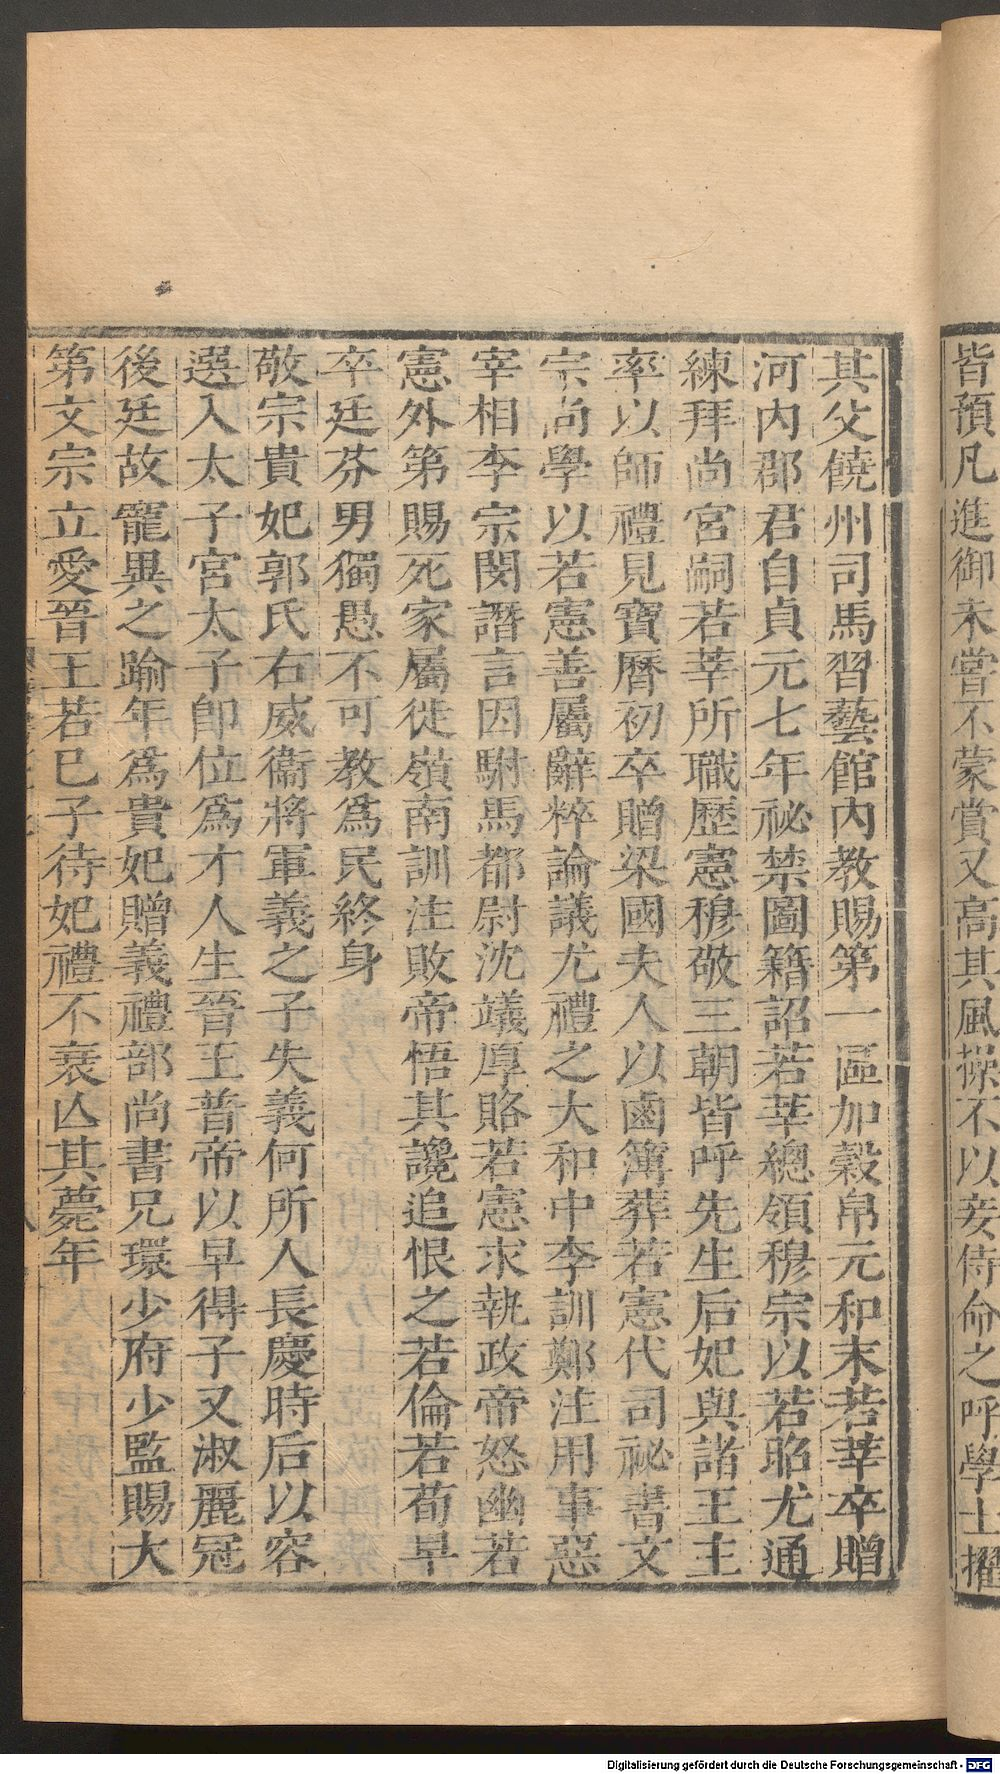 皆預凡進御未嘗不蒙賞又高其風操不以妾侍命之呼學士擢
其父饒州司馬習藝館內教賜第一區加穀帛元和末若莘卒贈
河內郡君自貞元七年祕禁圖籍詔若莘總領穆宗以若昭尤通
練拜尚宮嗣若莘所職歷憲穆敬三朝皆呼先生后妃與諸王主
率以師禮見寶曆初卒贈梁國夫人以鹵簿葬若憲代司祕書文
宗尚學以若憲善屬辭粹論議尤禮之大和中李訓鄭注用事惡
宰相李宗閔譖言因駙馬都尉沈𥫃厚賂若憲求執政帝怒幽若
憲外第賜死家屬徙嶺南訓注敗帝悟其讒追恨之若倫若荀早
卒廷芬男獨愚不可教爲民終身
敬宗貴妃郭氏右威衞將軍義之子失義何所人長慶時后以容
選入太子宮太子卽位爲才人生晉王普帝以早得子又淑麗冠
後廷故寵異之踰年爲貴妃贈義禮部尚書兄環少府少監賜大
第文宗立愛晉王若已子待妃禮不衰亾其薨年
Digitalisierung gefördert durch die Deutsche Forschungsgemeinschaft - DFG